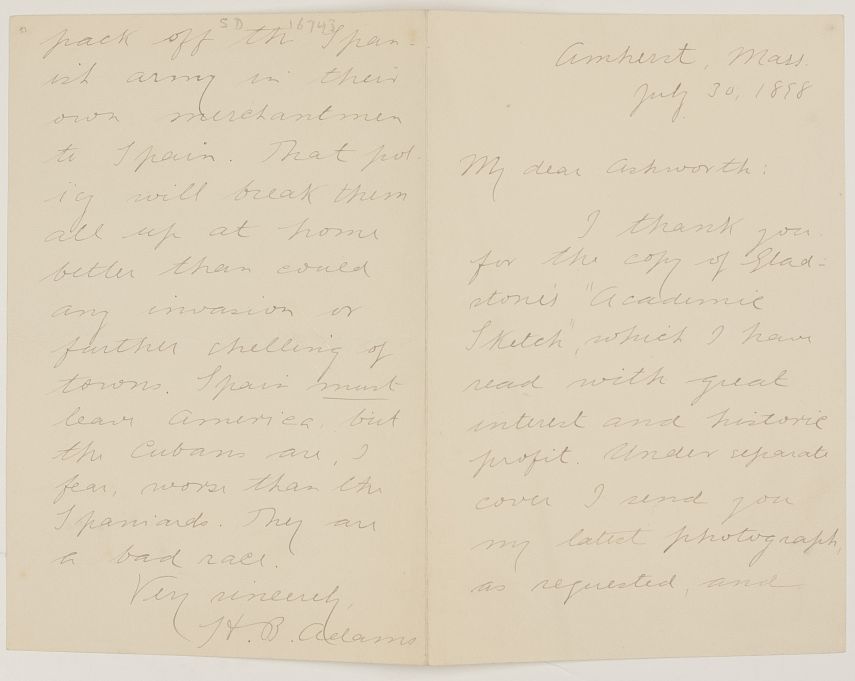 Amherst, Mass.
July 30, 1898
My dear Ashworth:
I thank you
for the copy of Glad-
stone's "Academic
Sketch", which I have
read with great
interest and historic
profit. Under separate
cover I send you
my latest photograph,
as requested, and
SD 16743
pack off the Span-
ish army in their
own merchantmen
to Spain. That pol-
icy will break them
all up at home
better than could
any invasion or
further shelling of
towns. Spain must
leave America, but
the Cubans are, I
fear, worse than the
Spaniards. They are
a bad race.
Very sincerely,
H. B. Adams